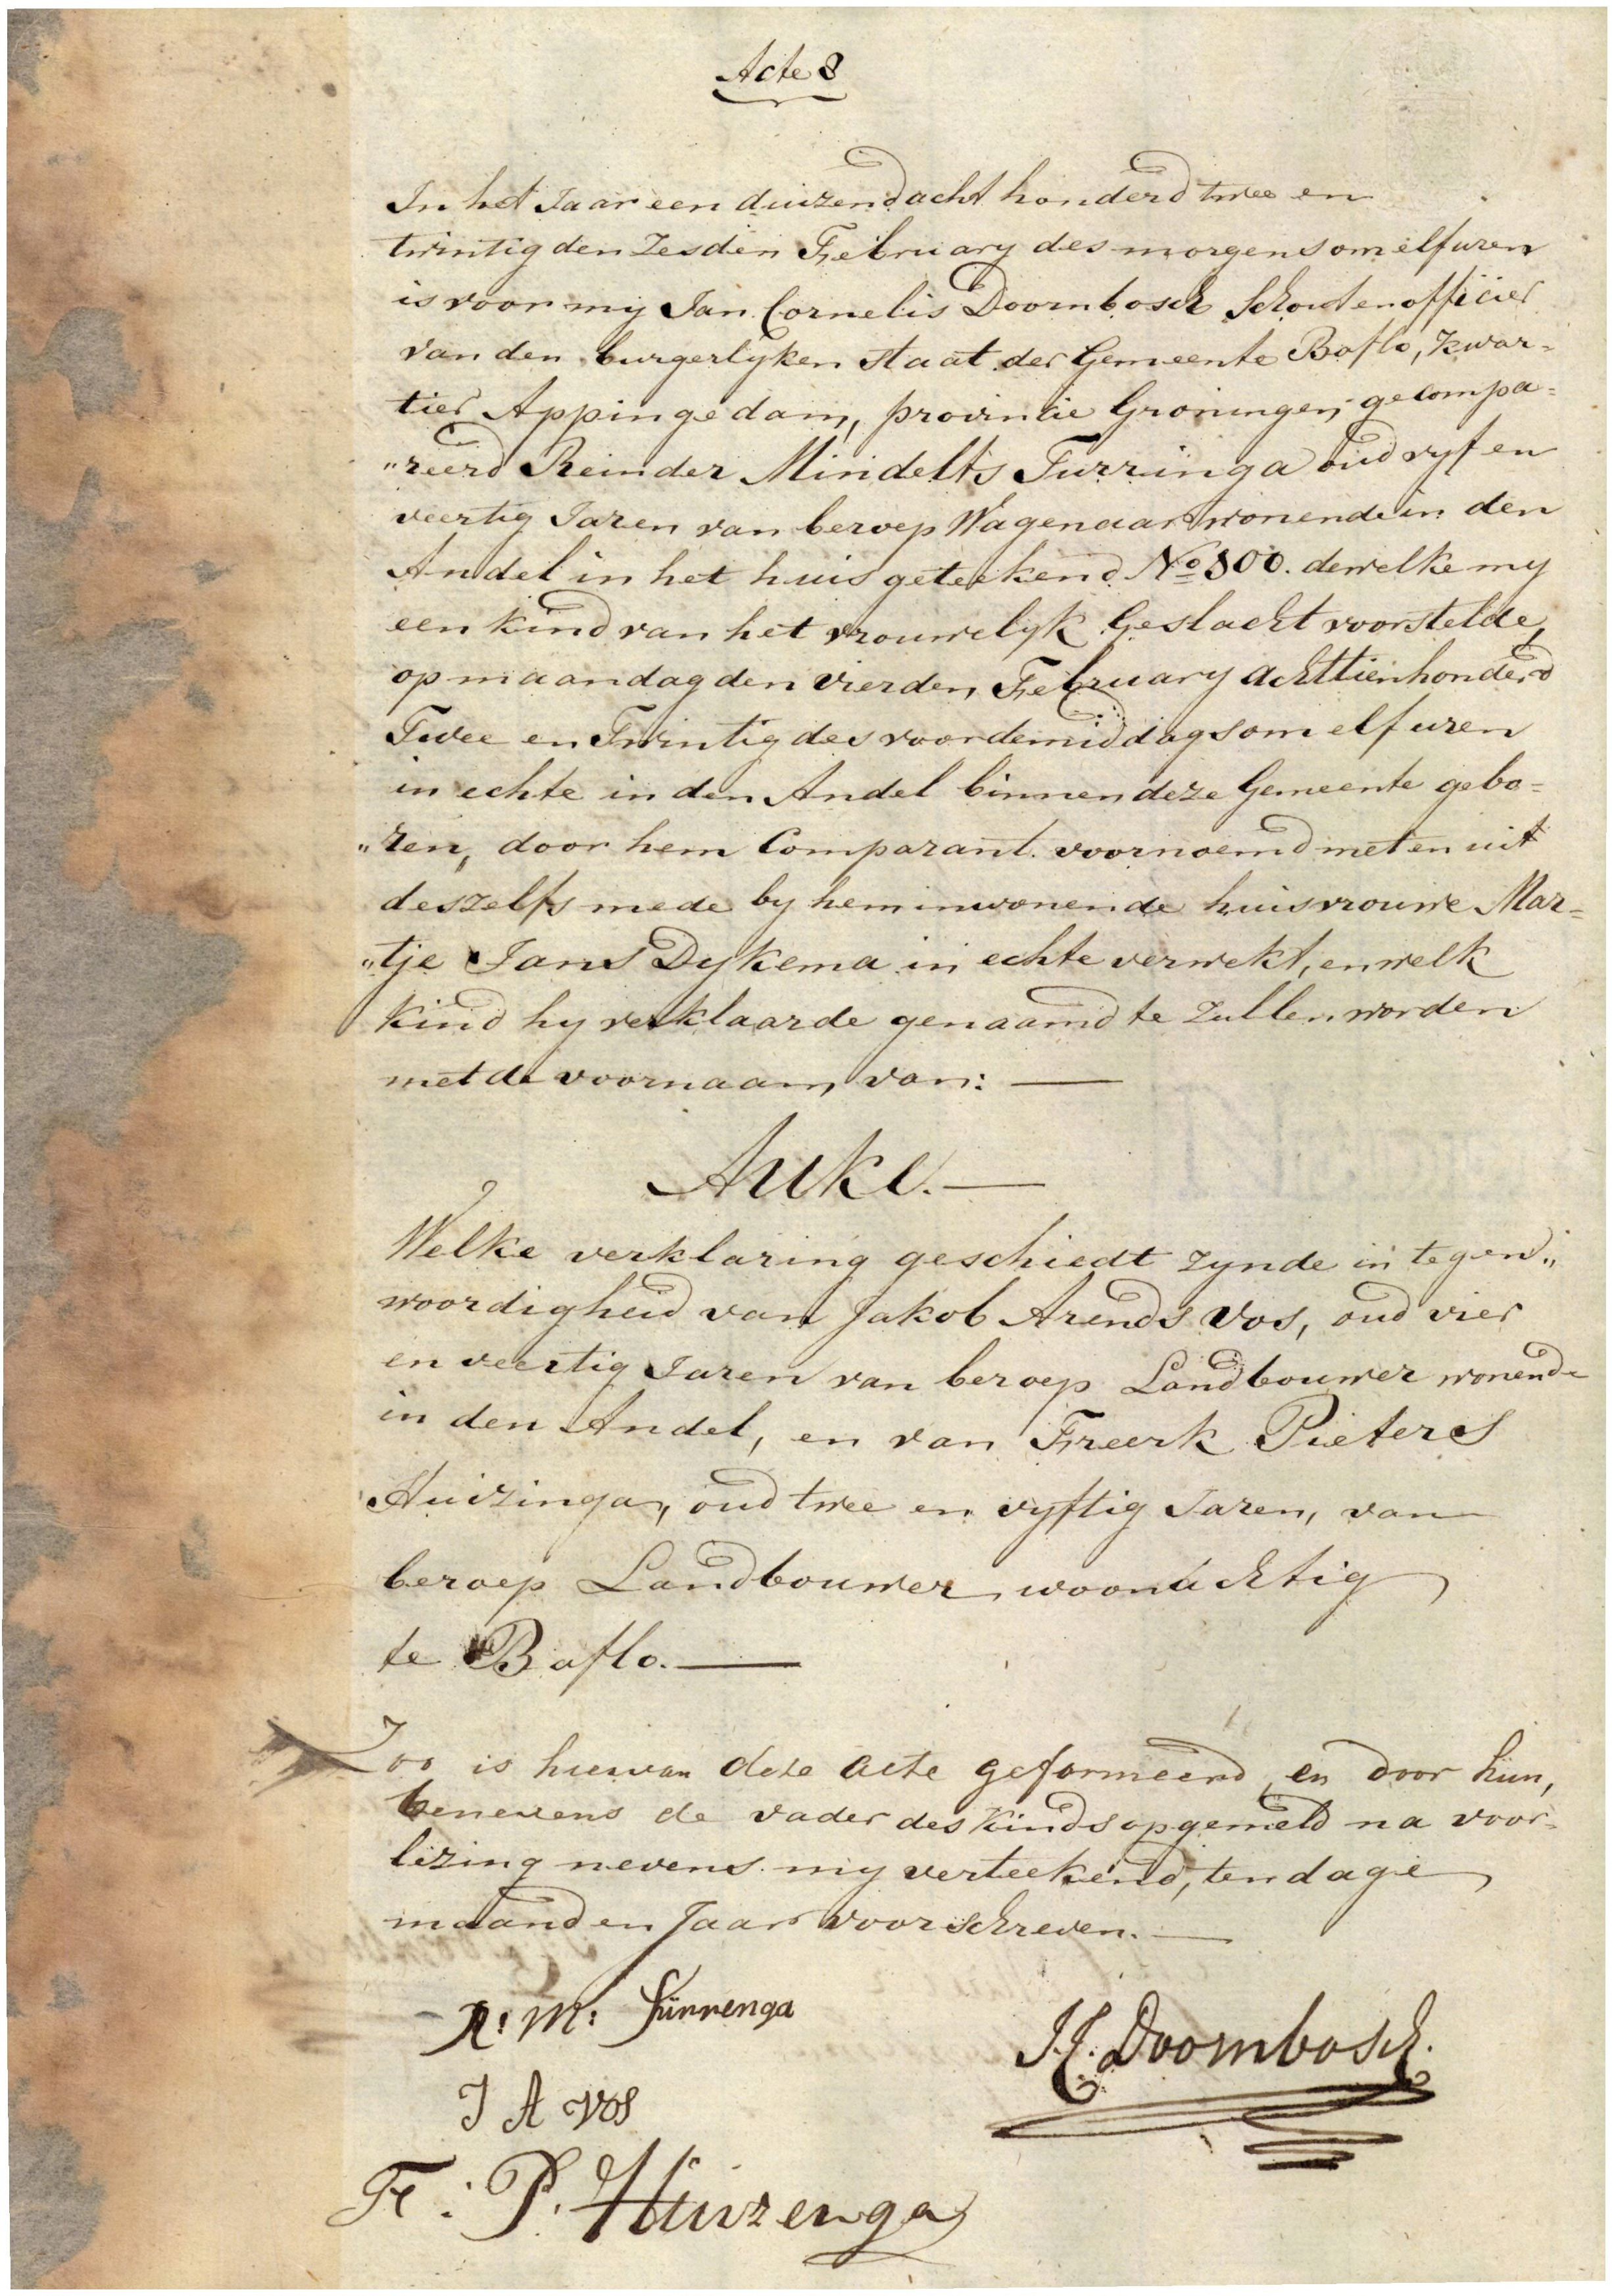 Acte 8
In het Jaar een duizend acht honderd twee en
twintig den Zesden February des morgens om elf uren
is voor my Jan Cornelis Doornbosch Schout en officier
van den burgerlyken staat der Gemeente Baflo, Kwar=
tier Appingedam, provincie Groningen, gecompa=
"reerd Reinder Mindelts Turringa oud vyf en
veertig Jaren van beroep Wagenaar wonende in den
Andel in het huis geteekend No 800. dewelke my
een kind van het vrouwelyk Geslacht voorstelde,
op maandag den vierden February achttienhonderd
Twee en Twintig des voordemiddags om elf uren
in echte in den Andel binnen deze Gemeente gebo=
"ren, door hem Comparant voornoemd met en uit
deszelfs mede by hem inwonende huisvrouwe Mar=
"tje Jans Dykema in echte verwekt, en welk
kind hy verklaarde genaamd te zullen worden
met de voornaam van: —
Auke. —
Welke verklaring geschiedt zynde in tegen"
woordigheid van Jakob Arends Vos, oud vier
en veertig Jaren van beroep Landbouwer wonende
in den Andel, en van Freerk Pieters
Huizinga, oud twee en vyftig Jaren, van
beroep Landbouwer woonachtig
te Baflo. —
Zoo is hiervan deze acte geformeerd en door hun,
benevens de vader des Kinds opgemeld na voor=
lezing nevens my verteekend, ten dage
maand en Jaar voorschreven. —
R: M: Türrenga
J. C. Doornbosch.
J A Vos
Fr: P. Huizenga